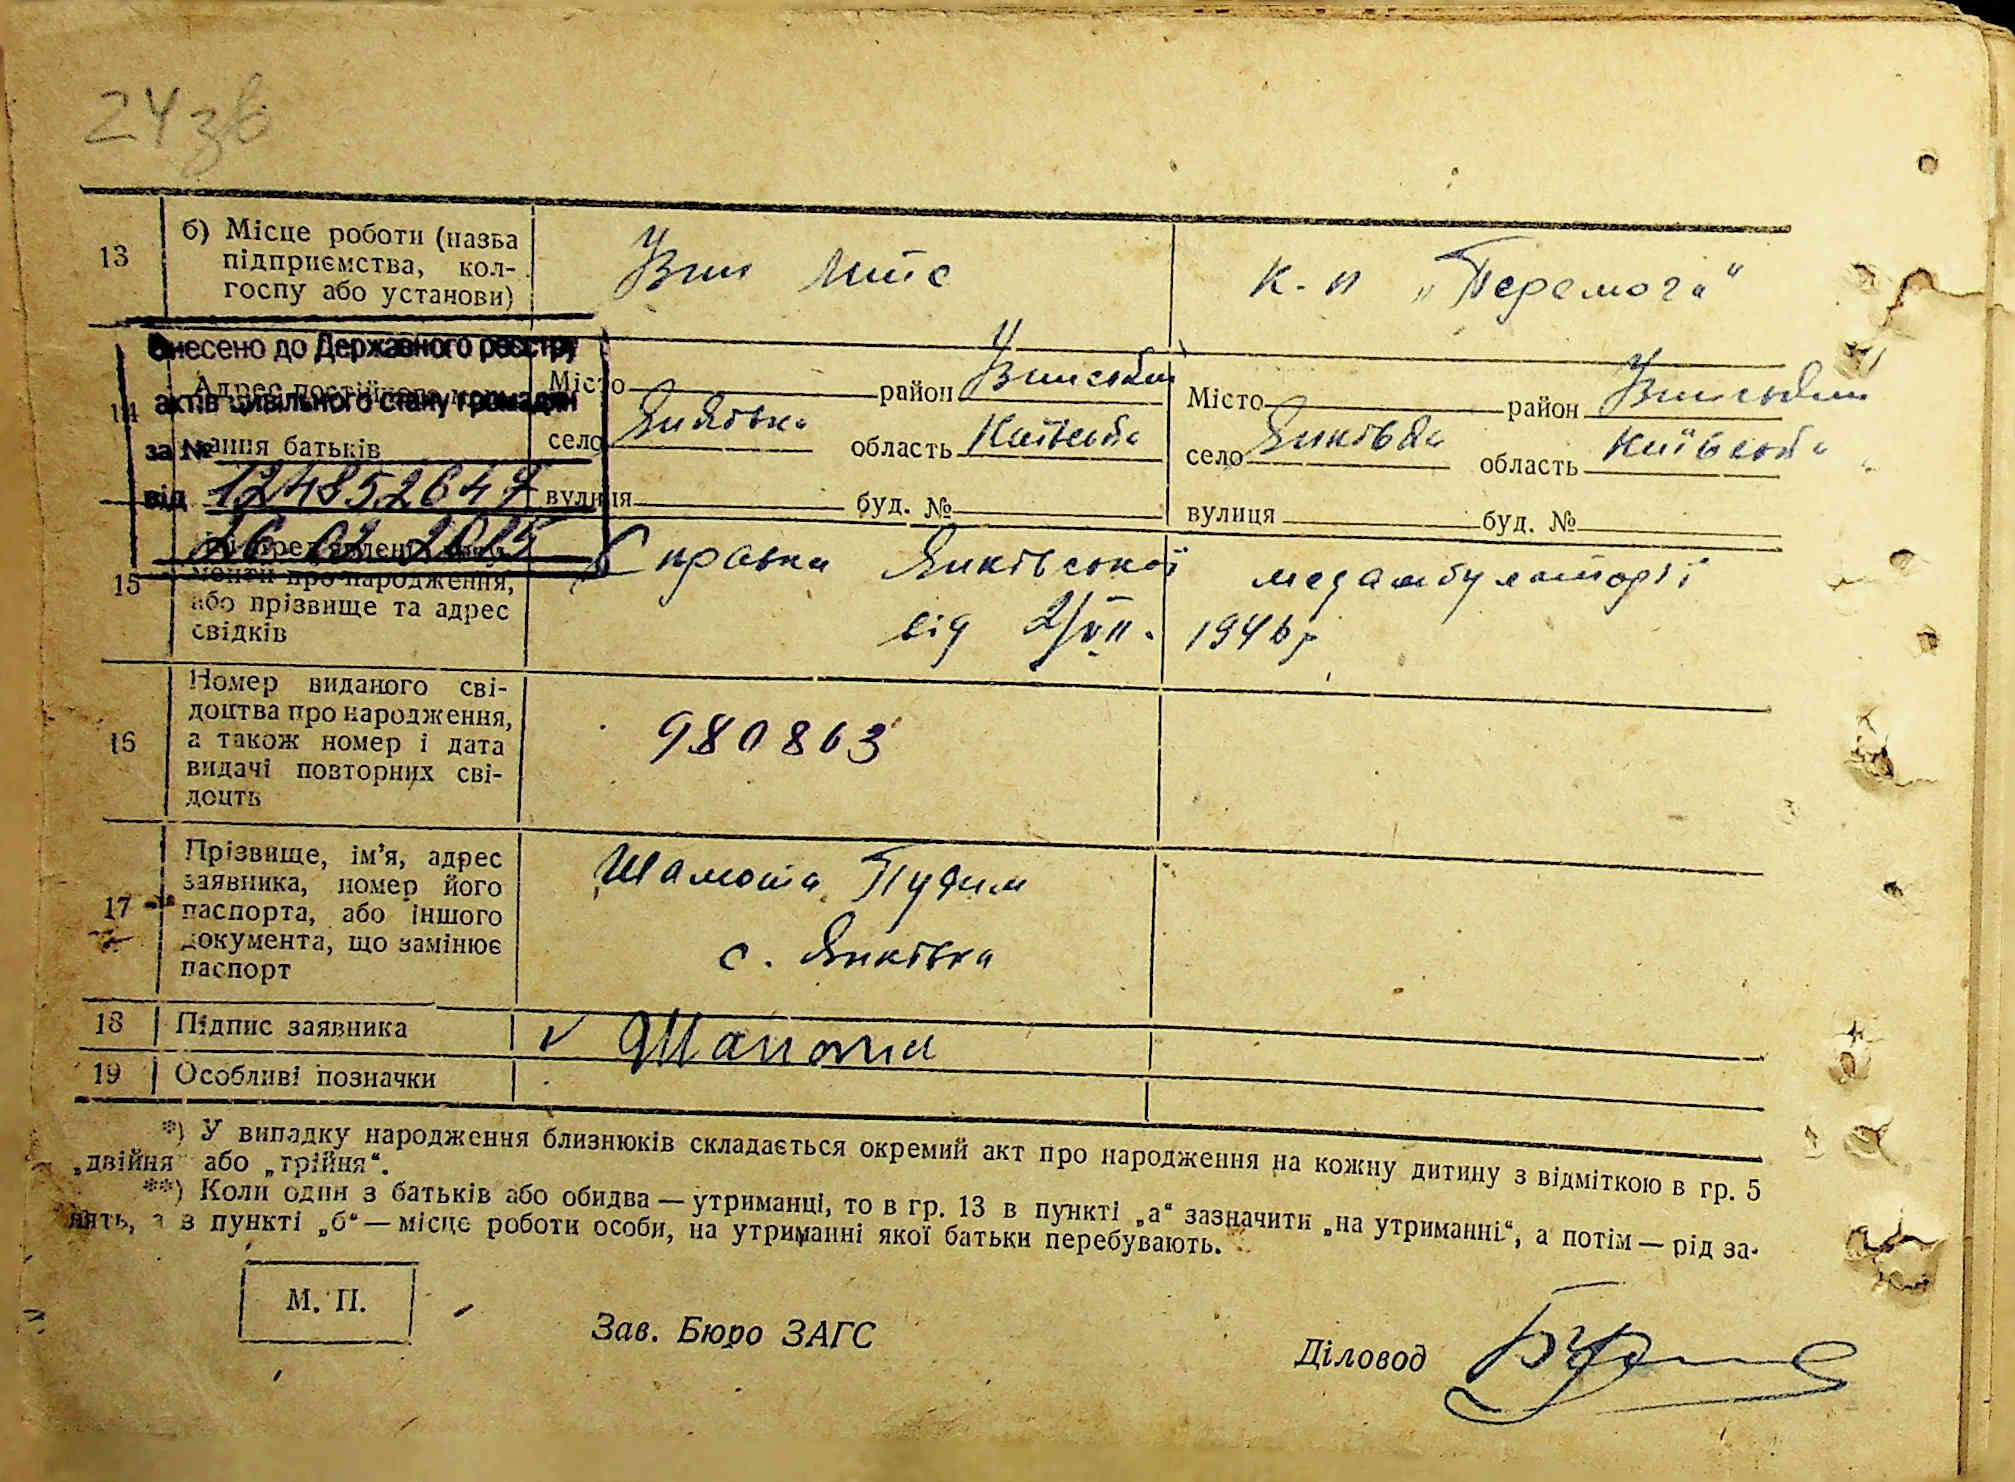 24 зв
13
б) Місце роботи (назва
підприємства, кол-
госпу або установи)
Узин
к-п „Перемога“
Внесено до Державного реєстру
актів цивільного стану громадян
за №
від 124852647
26 02 2015
14
Адрес постійного
ання батьків
Місто район Узинський
село Янківка область Київська
вулиця буд. №
Місто район Узинський
село Янківка область Київська
вулиця буд. №
15
менти про народження,
або прізвище та адрес
свідків
Справка Янківської медамбулаторії
від 2/VII. 1946 р
16
Номер виданого сві-
доцтва про народження,
а також номер і дата
видачі повторних сві-
доцтв
980863
17
Прізвище, ім’я, адрес
заявника, номер його
паспорта, або іншого
документа, що замінює
паспорт
Шамота
с. Янківка
18 Підпис заявника
V
19 Особливі позначки
*) У випадку народження близнюків складається окремий акт про народження на кожну дитину з відміткою в гр. 5
„двійня“ або „трійня“.
**) Коли один з батьків або обидва — утриманці, то в гр. 13 в пункті „а“ зазначити „на утриманні“, а потім — рід за-
нять, а в пункті „б“ — місце роботи особи, на утриманні якої батьки перебувають.
М. П.
Зав. Бюро ЗАГС
Діловод